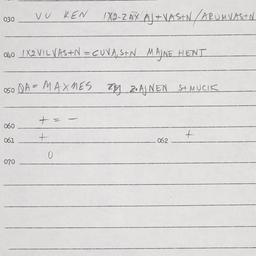 030 VU KEN 1X2-ZAY AJ+VAS+N/ARUMVAS+N
040 1X2VILVAS+N=CUVA,S+N MAJNE HENT
050 DA= MAXMES ZAJNEN S+MUCIK
060 + = -
061 + 062 +
070 0